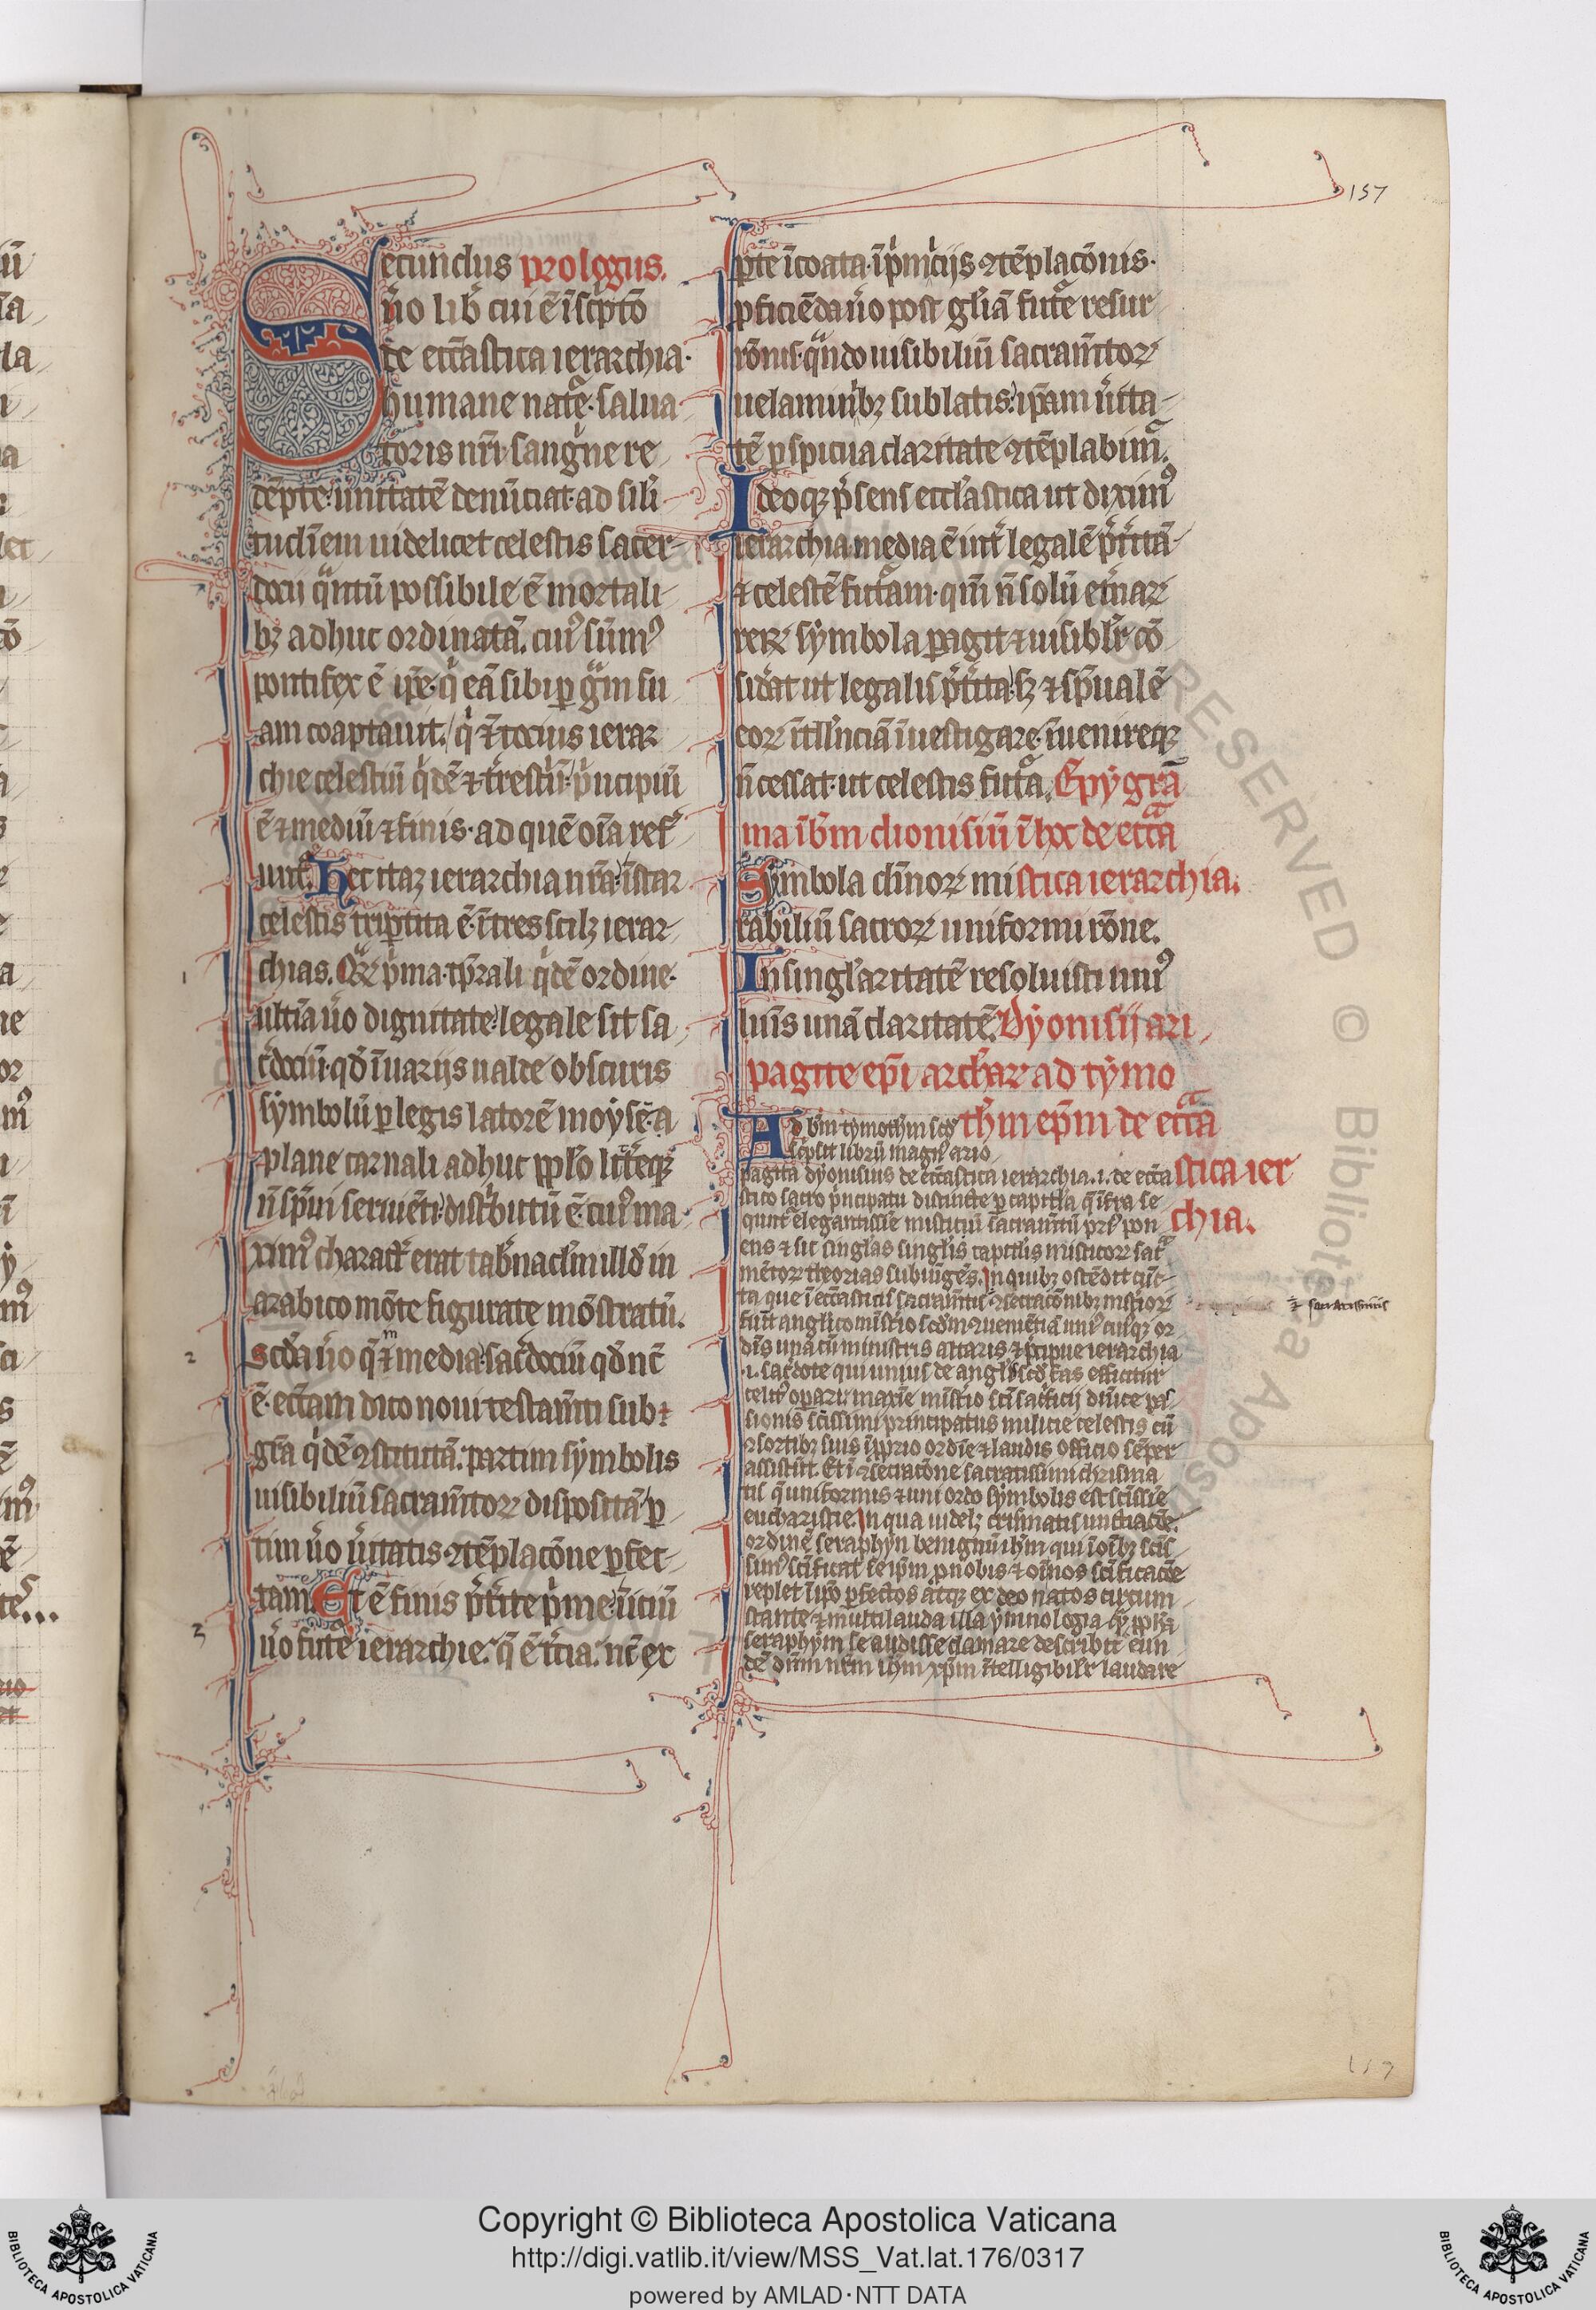 157
Secundus prologus.
u̾o lib̾ cui ē īsc̾ptō
de ecc̄astica ierarchia·
humane nat̾e· salua
toris nr̄i· sang̾ne re
dēpte· unitatē denūciat· ad sili
tudīem uidelicet celestis sacer
docii q̾ntū possibile ē mortali
bꝫ adhuc ordinatā. cuiꝰ sūmꝰ
pontifex ē ip̄e· q̾ eā sibi ꝑ g̾m su
am coaptauit. q̾ ⁊ tocius ierar
chie celestiū q̾dē ⁊ t̾restriū· p̾ncipiū
ē ⁊ mediū ⁊ finis· ad quē oīa ref̾
unt̾. Hec itaꝫ ierarchia nr̄a· īstar
celestis trip̄tita ē· ī tres scilꝫ ierar
chias. Qꝝ p̾ma· tp̄rali q̾dē ordine·
ultīa u̾o dignitate· legale sit sa
c̾dociū· qd̄ ī uarijs ualde obscuris
symbolū ꝑ legis latorē moysē· a
plane carnali adhuc pp̄lo litt̾eqꝫ
n̄ sp̄ui seruiēti· dist̾butū ē· cuiꝰ ma
ximꝰ charact̾ erat tab̾nacl̄m illd̄ in
arabico mōte figurate mōstratū.
Scd̄a u̾o q̄ ⁊ media· sac̾dociū qd̄ nc̄
ē· ecc̄am dico noui testam̄ti sub
gr̄a q̾dē ꝯstitutā. partim symbolis
uisibiliū sacram̄toꝝ dispositā· ꝑ
tim u̾o u̾itatis ꝯtēplacōne ꝑfec
tam. Et ē finis p̾t̾ite p̾me· īiciū
u̾o fut̾e ierarchie. q̄ ē t̾cia. nc̄ ex
1
2
3
ꝑte īcoata· ī p̾micijs ꝯtēplacōnis·
ꝑficiēda u̾o post gl̄iā fut̾e resur
rōnis· q̾ndo uisibiliū sacram̄toꝝ
uelaminibꝫ sublatis· ip̄am u̾ita
tē ꝑspicua claritate ꝯtēplabim̾.
Ideoqꝫ p̾sens eccl̄astica ut diximꝰ
ierarchia media ē int̾ legalē p̾t̾itā
⁊ celestē fut̾am· qm̄ n̄ solū et̾naꝝ
reꝝ symbola ꝑagit ⁊ uisibl̄r cō
sid̾at ut legalis p̾t̾ita· sꝫ ⁊ sp̄ualē
eoꝝ ītll̄nciā īuestigare· īuenireqꝫ
n̄ cessat· ut celestis fut̾a. Epygrā
ma ī bm̄ dionisiū ī lx̄ de ecc̄a
stica ierarchia.
Symbola diūnoꝝ mi
rabiliū sacroꝝ uniformi rōne.
In singl̄aritatē resoluisti uniꝰ
luīs unā claritatē. Dyonisij ari
pagite ep̄i archar̄ ad tymo
th̄m ep̄m de ecc̄a
stica ier
chia.
Ad bm̄ tymoth̄m scd̄m
sc̾psit librū magnꝰ ario
pagita dyonisius de ecc̄astica ierarchia .i. de ecc̄a
stico sacro p̾ncipatu distincte ꝑ capitl̄a q̄ īfra se
qunt̾ elegantissīe misticiū sacram̄tū
ens ⁊ sic singl̄as singl̄is capitl̄is misticoꝝ sac̾
mētoꝝ theorias subiūgēs. In quibꝫ ostēdit cūc
ta que ī ecc̄asticis sacram̄tis ꝯsecracōnibꝫ
fiūt anglico mīst̾io scd̄m ꝯueniētiā uniꝰ cuiꝰqꝫ or
dīs una cū ministris altaris ⁊ p̾cipue ierarchia
.i. sac̾dote qui unius de angl̄is efficitur
maxīe mīst̾io scī sac̾ficij diūice pas
sionis scīssimi principatus milicie celestis cū
ꝯsortibꝫ suis ī ꝓprio ordīe ⁊ laudis officio sēper
assistūt. Et ī ꝯsecracōne sacratissimi chrisma
tis q̄ uniformis ⁊ uni ordo symbolis est scīssīe
eucharistie. In qua uidelꝫ crismatis unctiacōe·
ordinē seraphyn benignū ih̄m qui ī oībꝫ scīs
sim̾ scīficat̾ se ip̄m ꝓ nobis ⁊ oīnos scīficacōe
replet īꝓꝓ ꝑfectos atqꝫ ex deo natos circum
stante ⁊ multilauda illa ymnologia q̄
seraphym se audisse clamare describit eun
dē dnm̄ nr̄m ih̄m xp̄m ītelligibilr̄ laudare
sacratissimis
157
Copyright © Biblioteca Apostolica Vaticana
http://digi.vatlib.it/view/MSS_Vat.lat.176/0317
powered by AMLAD·NTT DATA
BIBLIOTECA APOSTOLICA VATICANA
BIBLIOTECA APOSTOLICA VATICANA